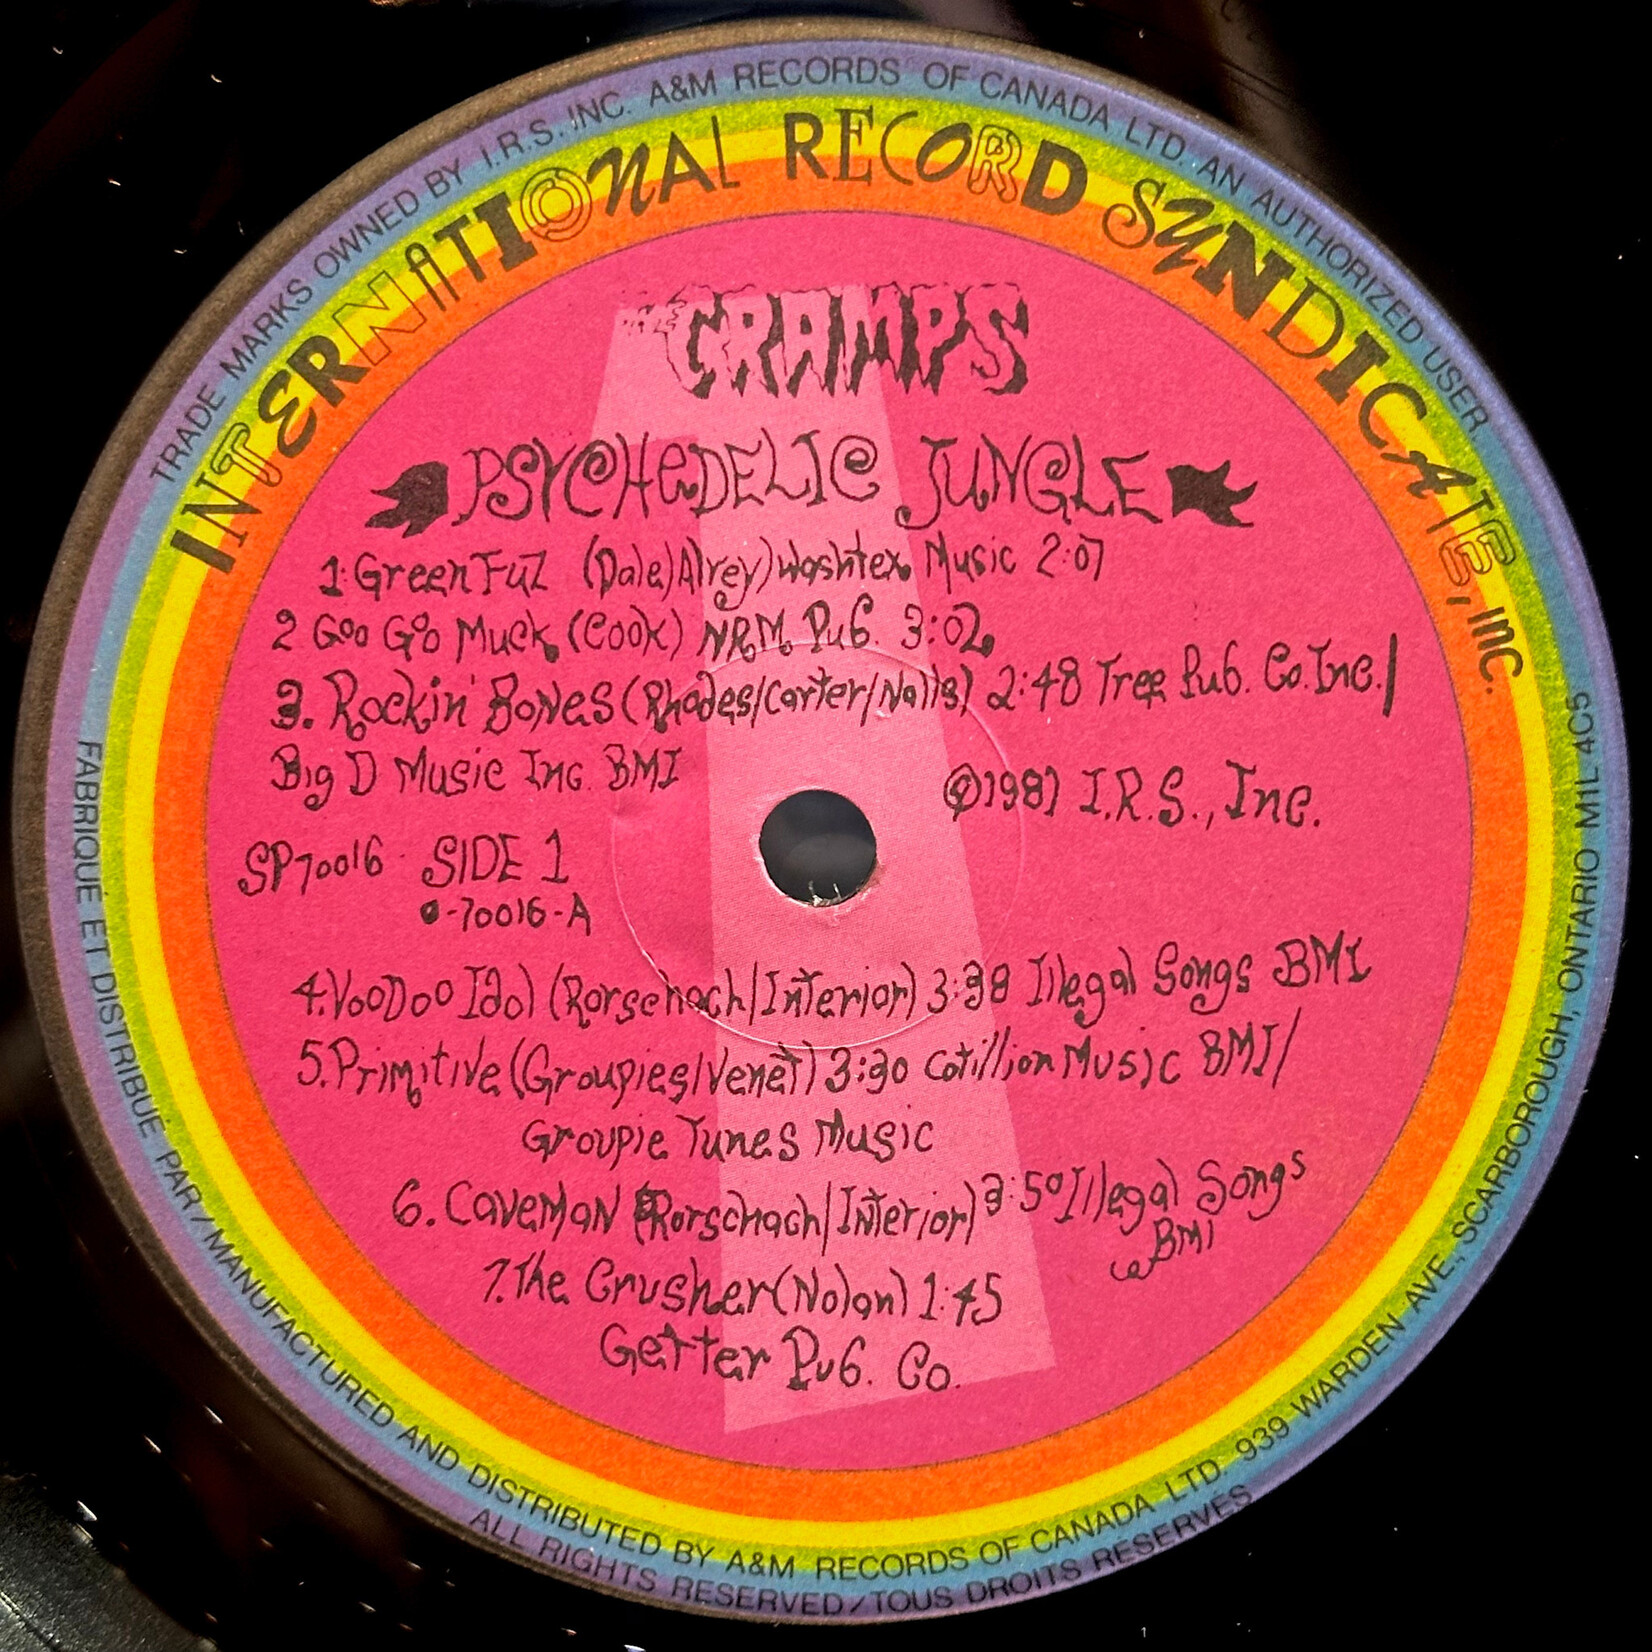 TRADE MARKS OWNED BY I.R.S. INC. A&M RECORDS OF CANADA LTD. AN AUTHORIZED USER
INTERNATIONAL RECORD SYNDICATE, INC.
THE CRAMPS
PSYCHEDELIC JUNGLE
1. Green Fuz (Dale/Alvey) Washtex Music 2:07
2 Goo Goo Muck (Cook) NRM Pub. 3:02
3. Rockin' Bones (Rhodes/Carter/Nalls) 2:48 Tree Pub. Co. Inc./
Big D Music Inc. BMI
©1981 I.R.S., Inc.
SP70016 SIDE 1
-70016-A
4. VooDoo Idol (Rorschach/Interior) 3:38 Illegal Songs BMI
5. Primitive (Groupies/Venet) 3:30 Cotillion Music BMI/
Groupie Tunes Music
6. Caveman (Rorschach/Interior) 3:50 Illegal Songs
BMI
7. The Crusher (Nolan) 1:45
Getter Pub. Co.
FABRIQUÉ ET DISTRIBUÉ PAR/MANUFACTURED AND DISTRIBUTED BY A&M RECORDS OF CANADA LTD. 939 WARDEN AVE., SCARBOROUGH, ONTARIO M1L 4C5
ALL RIGHTS RESERVED/TOUS DROITS RESERVES